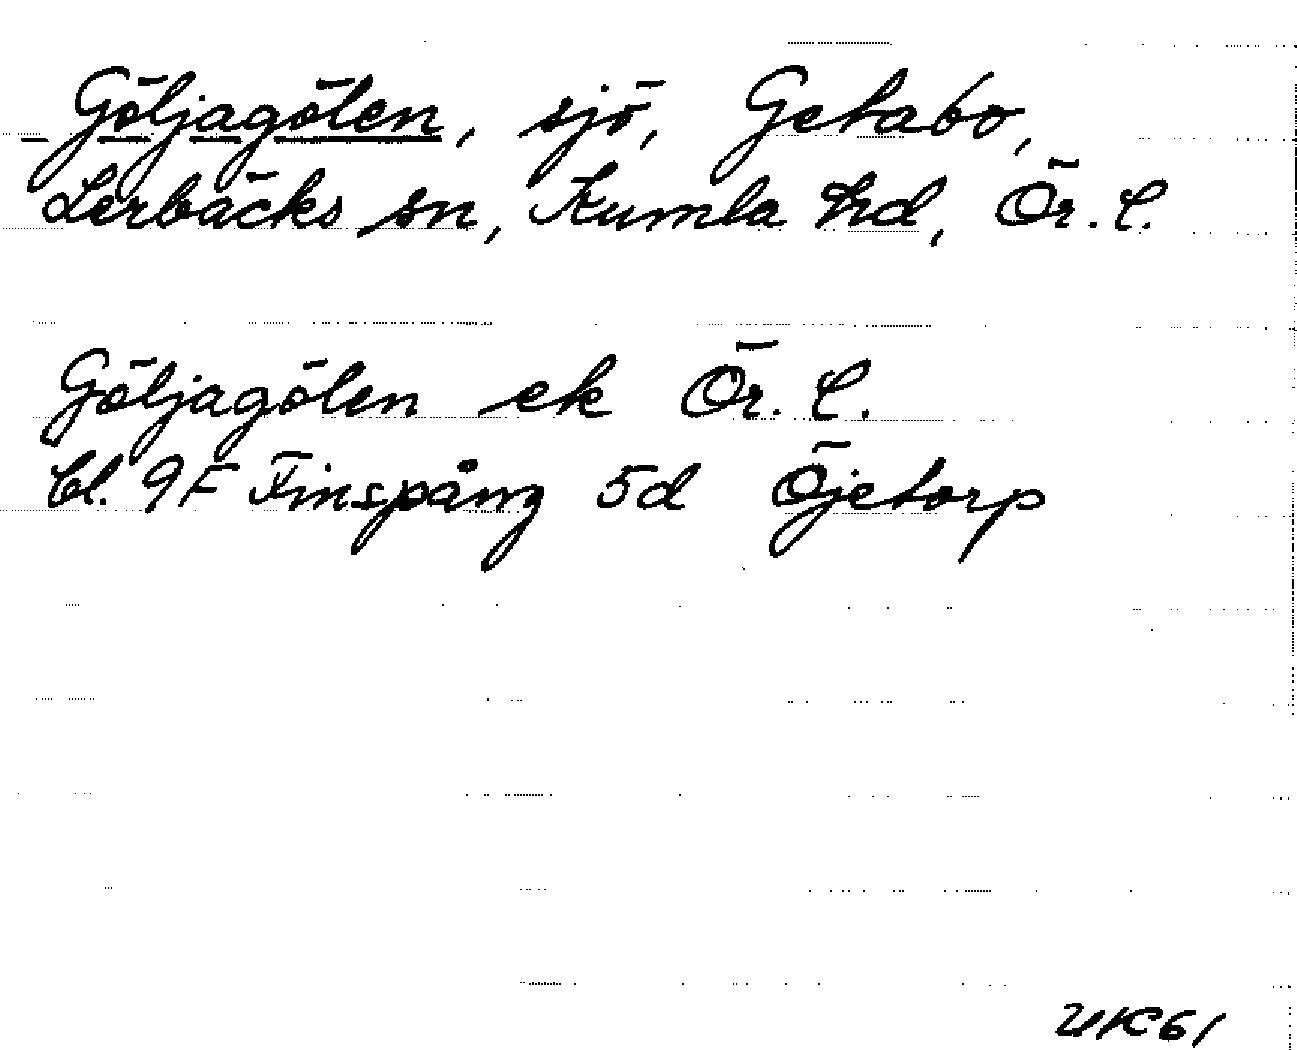 Göljagölen, sjö, Getabo,
Lerbäcks sn, Kumla hd, Ör. l.
Göljagölen ek Ör. l.
Bl. 9F Finspång 5d Öjetorp
UK61